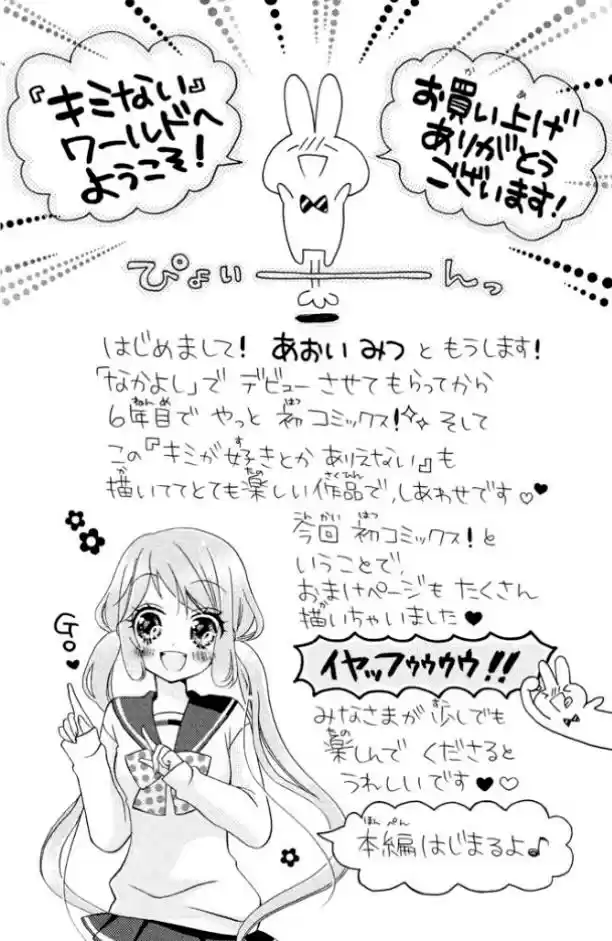 お買い上げ
ありがとう
ございます!
『キミない』
ワールドへ
ようこそ!
ぴょいーんっ
はじめまして! あおいみつ ともうします!
「なかよし」で デビューさせてもらってから
6年目で やっと 初コミックス! そして
この『キミが好きとかありえない』も
描いててとても楽しい作品で、しあわせです♡♥
今回 初コミックス!と
いうことで、
おまけページも たくさん
描いちゃいました♥
Go♥
イヤッフゥゥゥウ!!
みなさまが 少しでも
楽しんで くださると
うれしいです♥♡
本編はじまるよ♪